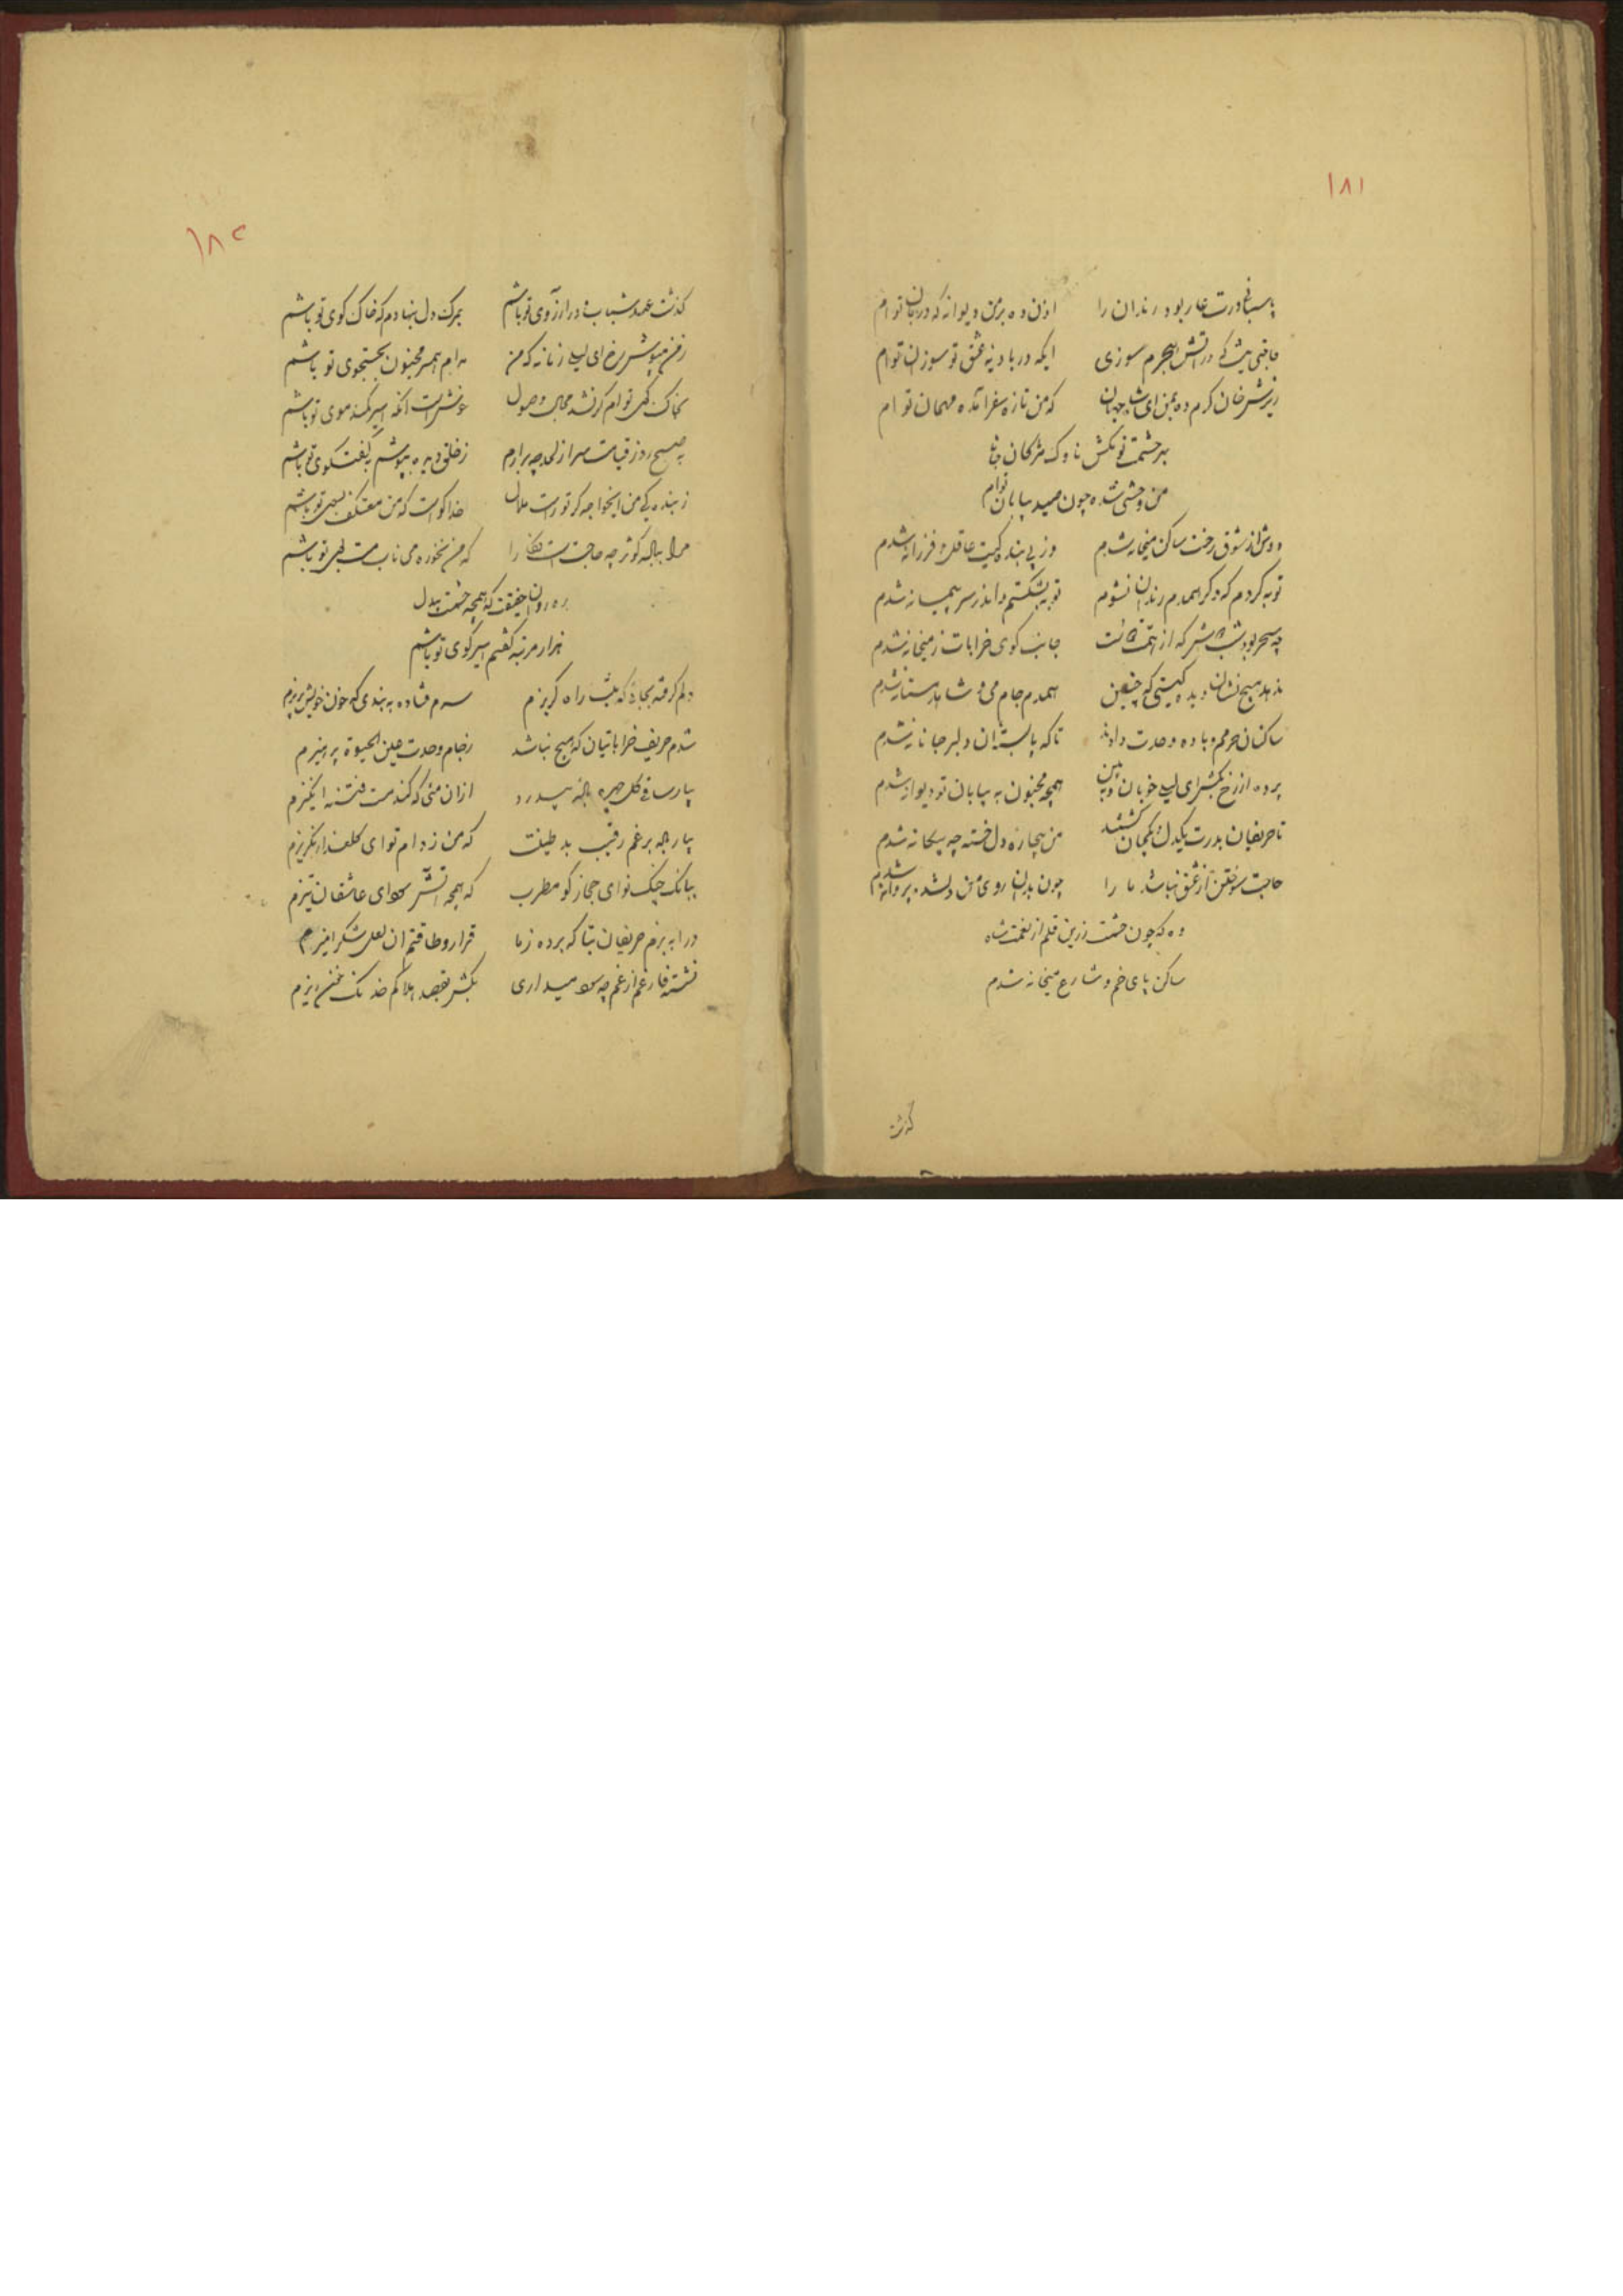 ۱۸۱
پاسبانی درت عار بود رندان را اذن ده بر من دیوانه که دربان توام
حاجتی نیست که در آتش هجرم سوزی ایکه در بادیه عشق تو سوزان توام
ریزش خان کرم ده بمن ای شاه جهان که من تازه سفر آمده مهمان توام
بر حشمت تو بکش ناوک مژکان جفا
من وحشی شده چون صید بیابان توام
دوش از شوق رخت ساکن میخانه شدم وز پی بنده کیت عاقل و فرزانه شدم
توبه کردم که دکر همدم رندان نشوم توبه بشکستم و اندر سر پیمانه شدم
چه سحر بود شب که از همت جانب کوی خرابات ز میخانه شدم
ندهد هیچ نشان دیده کیتی که چنین همدم جام می و شاهد مستانه شدم
ساکنان حرمم باده وحدت دادند تا که پا بست دلبر جانانه شدم
پرده از رخ بکش ای لیلی خوبان و ببین همچو مجنون به بیابان تو دیوانه شدم
تا حریفان بدرت یکدل و یکجان کشتند من بیچاره دل خسته چه بیکانه شدم
حاجت سوختن از عشق نباشد ما را چون بدان روی من دلشده پروانه شدم
وه که چون حشمت زرین قلم از نعمت شاه
ساکن پای خم و شارع میخانه شدم
کذشت
۱۸۲
کذشت عهد شباب و در آرزوی تو باشم بمرک دل بنهادم که خاک کوی تو باشم
ز من مپوش رخ ای لیلی زمانه که من مدام همسر مجنون بجستجوی تو باشم
بخاک توام کر نشد مجال وصول خوش است آنکه اسیر کمند موی تو باشم
به صبح روز قیامت سر از لحد چه برارم ز خلق دیده بپوشم به کفتکوی تو باشم
ز بنده کی من ایخواجه کر تو راست ملال خدا کواست که من معتکف بسوی تو باشم
مرا بباله کوثر چه حاجت است را که من نخورده می ناب مست بوی تو باشم
ره روان حقیقت که همچو حشمت بیدل
هزار مرتبه کفتم اسیر کوی تو باشم
دلم کرفته بجائی که نیست راه کریزم سرم فتاده به بندی که خون خویش بریزم
شدم حریف خراباتیان که هیچ نباشد ز جام وحدت عین الحیوة پرهیزم
بیار ساقی کل چهره ازان منی که کند مست فتنه انکیزم
بیار برغم رقیب بد طینت که من ز دام تو ای کلعذار نکریزم
ببانک چنک نوای حجاز کو مطرب که همچو آتش سودای عاشقان تیزم
درا به بزم حریفان بتا که برده ز ما قرار و طاقتم آن لعل شکر آمیزم
نشسته فارغم از غم چه سود میداری بکش بقصد هلاکم خدنک